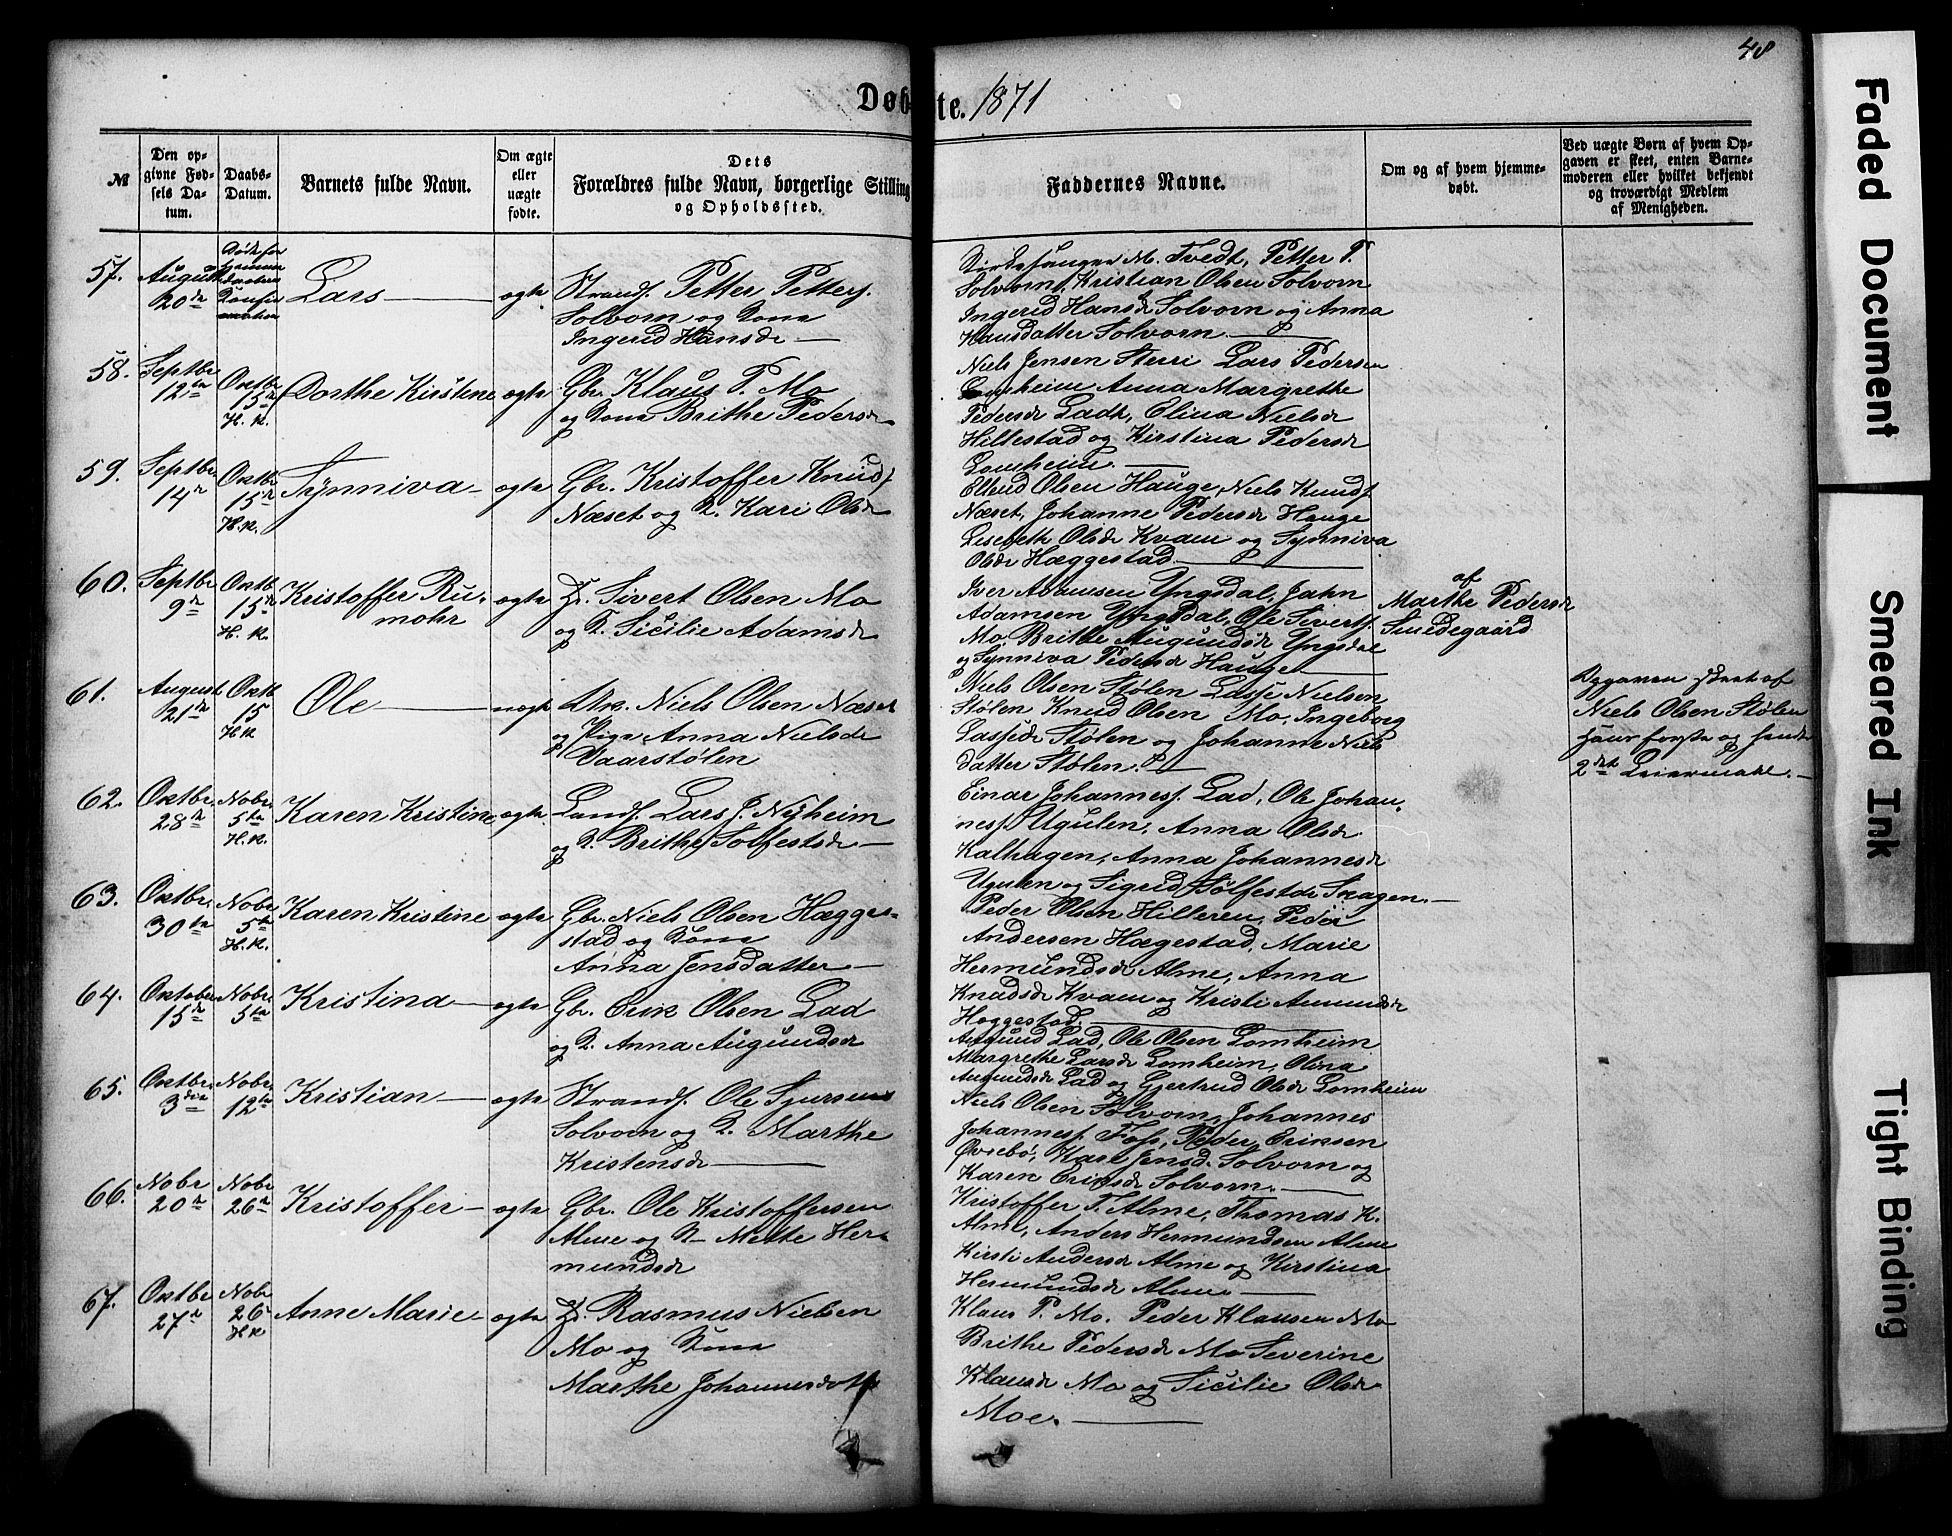 48
Døbte. 1871
№
Den op-
givne Fød-
sels Da-
tum.
Daabs-
Datum.
Barnets fulde Navn.
Om ægte
eller
uægte
fødte.
Dets
Forældres fulde Navn, borgerlige Stilling
og Opholdssted.
Faddernes Navne.
Om og af hvem hjemme-
døbt.
Ved uægte Børn af hvem Op-
gaven er skeet, enten Barne-
moderen eller hvilket bekjendt
og troværdigt Medlem
af Menigheden.
57.
August
20de
Lars
ægte
Strands. Petter Petters.
Solvorn og Kone
Ingerid Hansdr
Kirkesanger M. Tvedt, Petter P.
Solvorn, Kristian Olsen Solvorn
Ingerid Hansdr Solvorn og Anna
Hansdatter Solvorn
58.
Septbr
12te
Oktbr
15de
H. K.
Dorthe Kirstine
ægte
Gbr. Klaus P. Mo
og Kone Brithe Pedersdr
Niels Jensen Sterri Lars Pedersen
Lomheim Anna Margrethe
Pedersdr Ladt, Elina Nielsdr
Hillestad og Kirstina Pedersdr
Lomheim.
59.
Septbr
14de
Oktbr
15de
H. K.
Synniva
ægte
Gbr. Kristoffer Knuds.
Næset og K. Kari Olsdr
Ellend Olsen Hauge, Niels Knuds.
Næset, Johanne Pedersdr Hauge
Lisebeth Olsdr Kvam og Synniva
Olsdr Hæggestad
60.
Septbr
9de
Oktb.
15de
H. K.
Kristoffer Ru-
mohr
ægte
Sivert Olsen Mo
og K. Sicilie Adamsdr
Iver Adamsen Yngsdal, Jahn
Adamsen Yngsdal, Ole Siverts.
Mo, Brithe Augundsdr Yngsdal
og Synniva Pedersdr Hauge
af
Marthe Pedersdr
Smedegaard
61.
August
21de
Oktb
15
H K
Ole
uægte
Niels Olsen Næset
og Pige Anna Nielsdr
Vaarstølen
Niels Olsen Stølen Lasse Nielsen
Stølen Knud Olsen Mo, Ingeborg
Lassedr Stølen og Johanne Niels
datter Stølen.
Opgaven skeet af
Niels Olsen Stølen
hans første og hendes
2det Leiermaal.
62.
Oktbr.
28de
Nobr.
5te
H. K.
Karen Kristine
ægte
Lands. Lars J. Nyheim
og K. Brithe Solfestsdr
Einar Johanness. Lad, Ole Johan-
ness. Ugulen, Anna Olsdr
Kalhagen, Anna Johannesdr
Ugulen og Sigrid Sølfestdr Skagen.
63.
Oktbr.
30te
Nobr
5te
H. K.
Karen Kristine
ægte
Gbr. Niels Olsen Hægge-
stad og Kone
Anna Jensdatter
Peder Olsen Hilleren, Peder
Andersen Hægestad, Marie
Hermundsdr Alme, Anna
Knudsdr Kvam og Kristi Amundsdr
Heggestad.
64.
Oktober
15de
Nobr.
5te
Kristina
ægte
Gbr. Erik Olsen Lad
og K. Anna Augundsdr
Augund Lad, Ole Olsen Lomheim
Margrethe Larsdr Lomheim, Olina
Augundsdr Lad og Gjertrud Olsdr Lomheim
65.
Oktbr.
3die
Nobr.
12te
Kristian
ægte
Strands. Ole Sjursen
Solvorn og K. Marthe
Kristensdr
Niels Olsen Solvorn, Johannes
Johanness. Foss, Peder Eriksen
Øvrebø, Kari Jensd. Solvorn og
Karen Eriksdr Solvorn.
66.
Nobr
20de
Nobr
26de
Kristoffer
ægte
Gbr. Ole Kristoffersen
Alme og K Mette Her-
mundsdr
Kristoffer T. Alme, Thomas K.
Alme, Anders Hermundsen Alme
Kirsti Andersdr Alme og Kirstina
Hermundsdr Alme
67.
Oktbr
27de
Nobr
26
H K
Anne Marie
ægte
Rasmus Nielsen
Mo og Kone
Marthe Johannesdatter
Klaus P. Mo. Peder Klausen Mo
Brithe Pedersdr Mo Severine
Klausdr Mo og Sicilie Olsdr
Moe.
Faded Document
Smeared Ink
Tight Binding